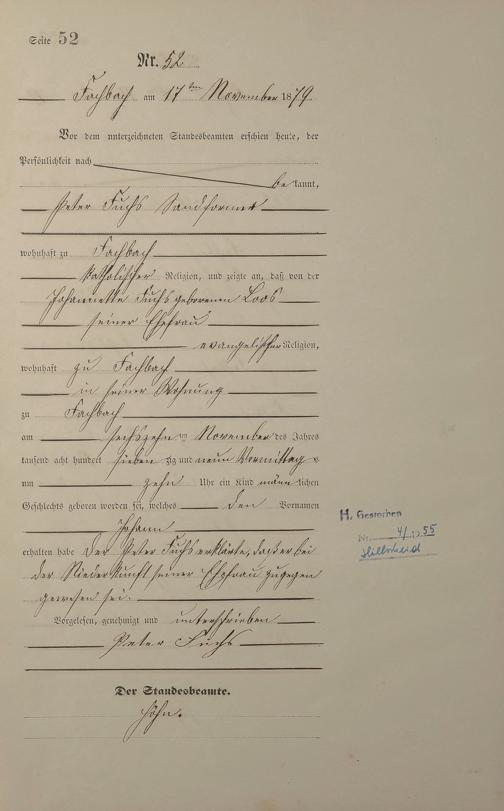 Seite 52
Nr. 52
Fachbach am 17ten November 1879.
Vor dem unterzeichneten Standesbeamten erschien heute, der
Persönlichkeit nach
be kannt,
Peter Fuchs Sandformer
wohnhaft zu Fachbach
katholischer Religion, und zeigte an, daß von der
Johannette Fuchs geborenen Loos
seiner Ehefrau
evangelischer Religion,
wohnhaft zu Fachbach
in seiner Wohnung
zu Fachbach
am sechszehn ten November des Jahres
tausend acht hundert sieben zig und neun Vormittags
um zehn Uhr ein Kind männ lichen
Geschlechts geboren worden sei, welches den Vornamen
Johann
erhalten habe Der Peter Fuchs erklärte, daß er bei
der Niederkunft seiner Ehefrau zugegen
gewesen sei.
Vorgelesen, genehmigt und unterschrieben
Peter Fuchs
Der Standesbeamte.
Höhn.
H. Gestorben
Nr. 4/1955
Hillscheid